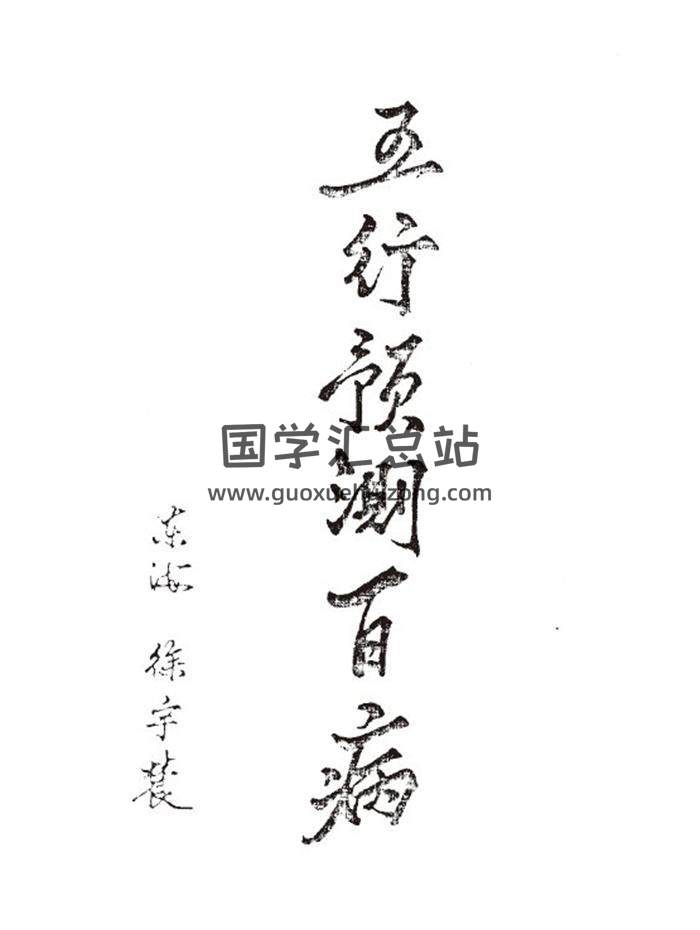 五行预测百病
东海 徐宇辳
国学汇总站
www.guoxuehuizong.com